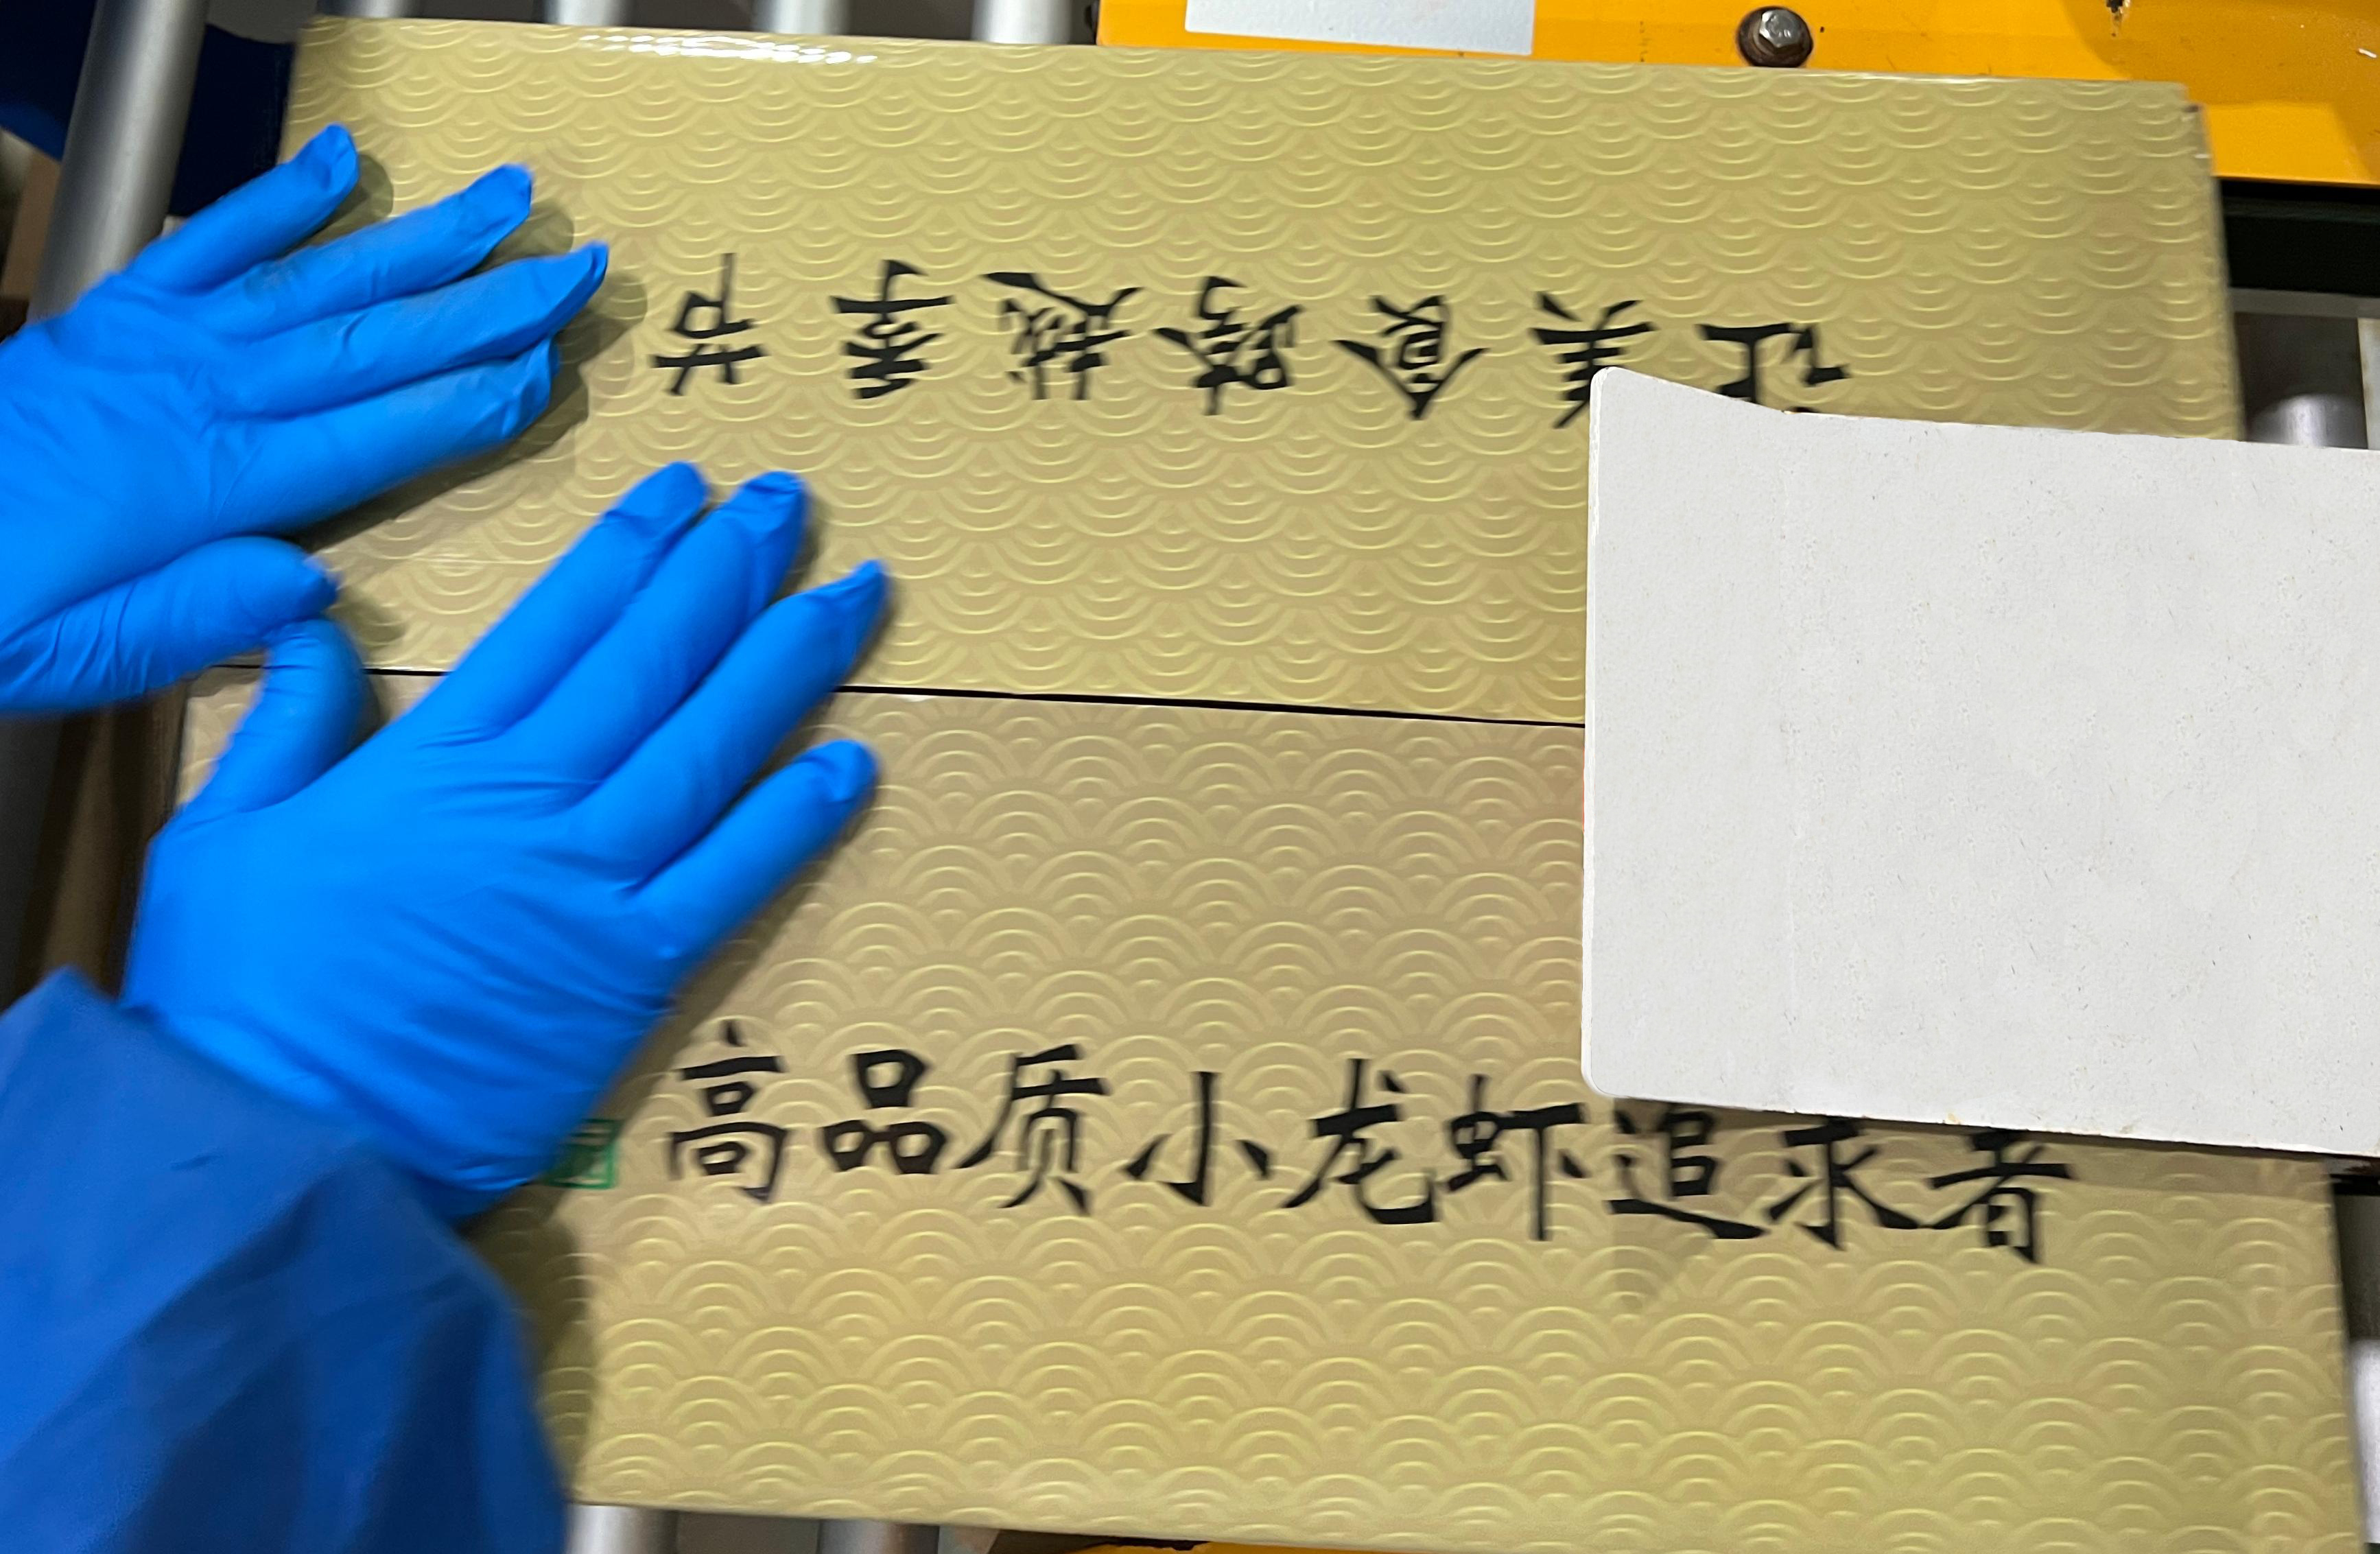 让美食跨越季节
高品质小龙虾追求者